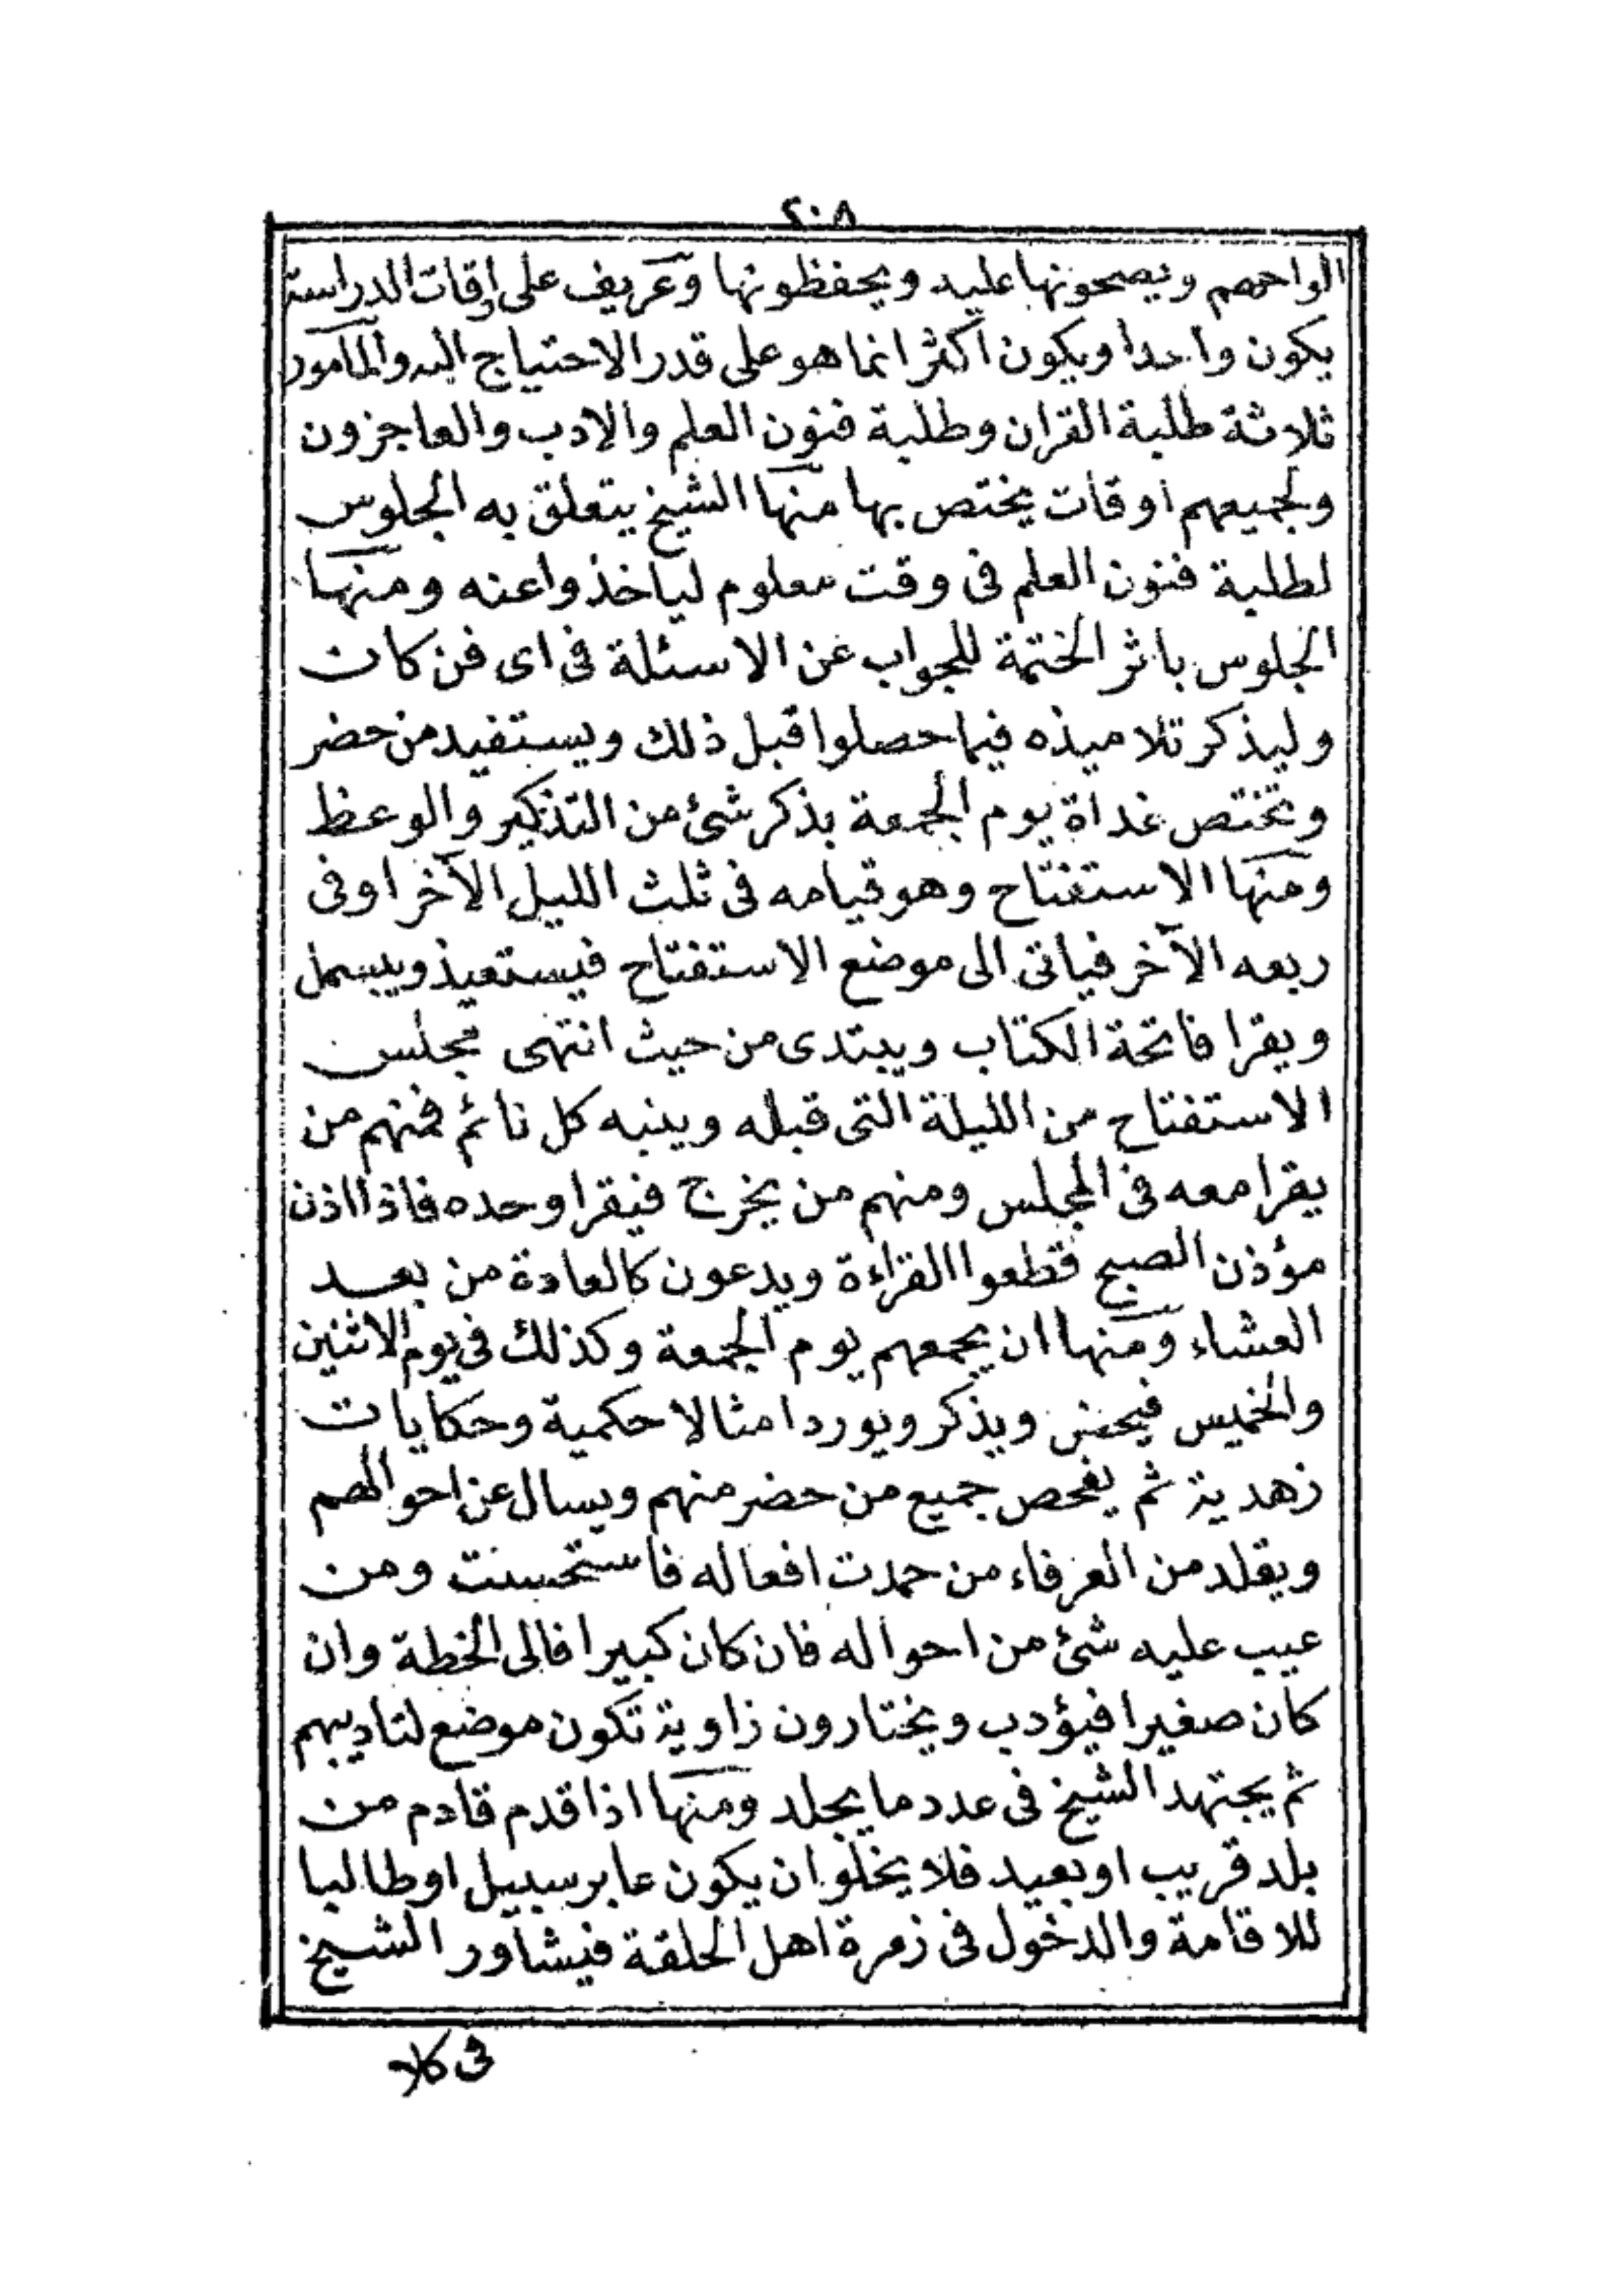 ٢٠٨
الواحهم ويصححونها عليه ويحفظونها وعريف على اوقات الدراسة
يكون واحدا ويكون اكثر انما هو على قدر الاحتياج اليه والمأمور
ثلاثة طلبة القران وطلبة فنون العلم والادب والعاجزون
ولجميعهم اوقات يختص بها منها الشيخ يتعلق به الجلوس
لطلبة فنون العلم فى وقت معلوم لياخذوا عنه ومنها
الجلوس باثر الختمة للجواب عن الاسئلة فى اى فن كات
وليذكر تلاميذه فيما حصلوا قبل ذلك ويستفيد من حضر
وتختص غداة يوم الجمعة بذكر شئ من التذكير والوعظ
ومنها الاستفتاح وهو قيامه فى ثلث الليل الآخر او فى
ربعه الآخر فياتى الى موضع الاستفتاح فيستعيذ ويبسمل
ويقرا فاتحة الكتاب ويبتدى من حيث انتهى مجلس
الاستفتاح من الليلة التى قبله وينبه كل نائم فمنهم من
يقرا معه فى المجلس ومنهم من يخرج فيقرا وحده فاذا اذن
مؤذن الصبح قطعوا القراءة ويدعون كالعادة من بعد
العشاء ومنها ان يجمعهم يوم الجمعة وكذلك فى يوم الاثنين
والخميس ويذكر ويورد امثالا حكمية وحكايات
زهدية ثم يفحص جميع من حضر منهم ويسال عن احوالهم
ويقلد من العرفاء من حمدت افعاله فاستحسنت ومن
عيب عليه شئ من احواله فان كان كبيرا فالى الخطة وان
كان صغيرا فيؤدب ويختارون زاوية تكون موضع لتاديبهم
ثم يجتهد الشيخ فى عدد ما يجلد ومنها اذا قدم قادم من
بلد قريب او بعيد فلا يخلو ان يكون عابر سبيل او طالبا
للاقامة والدخول فى زمرة اهل الحلقة فيشاور الشيخ
فى كلا